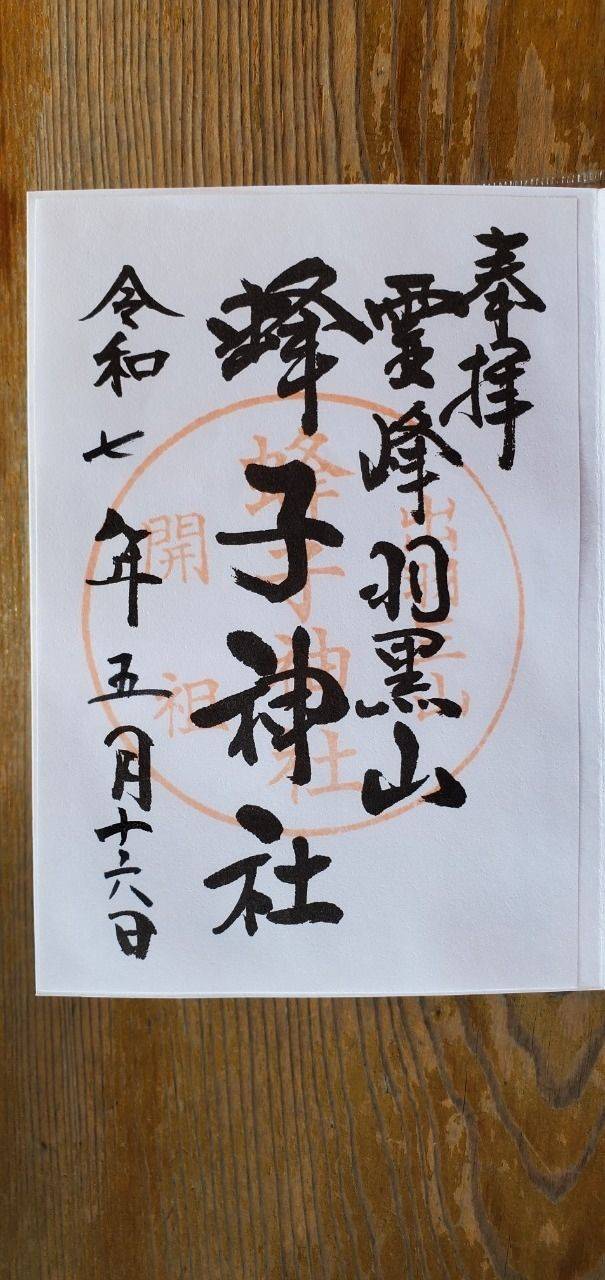 奉拝
霊峰羽黒山
蜂子神社
令和七年五月十六日
出羽三山
蜂子神社
開祖